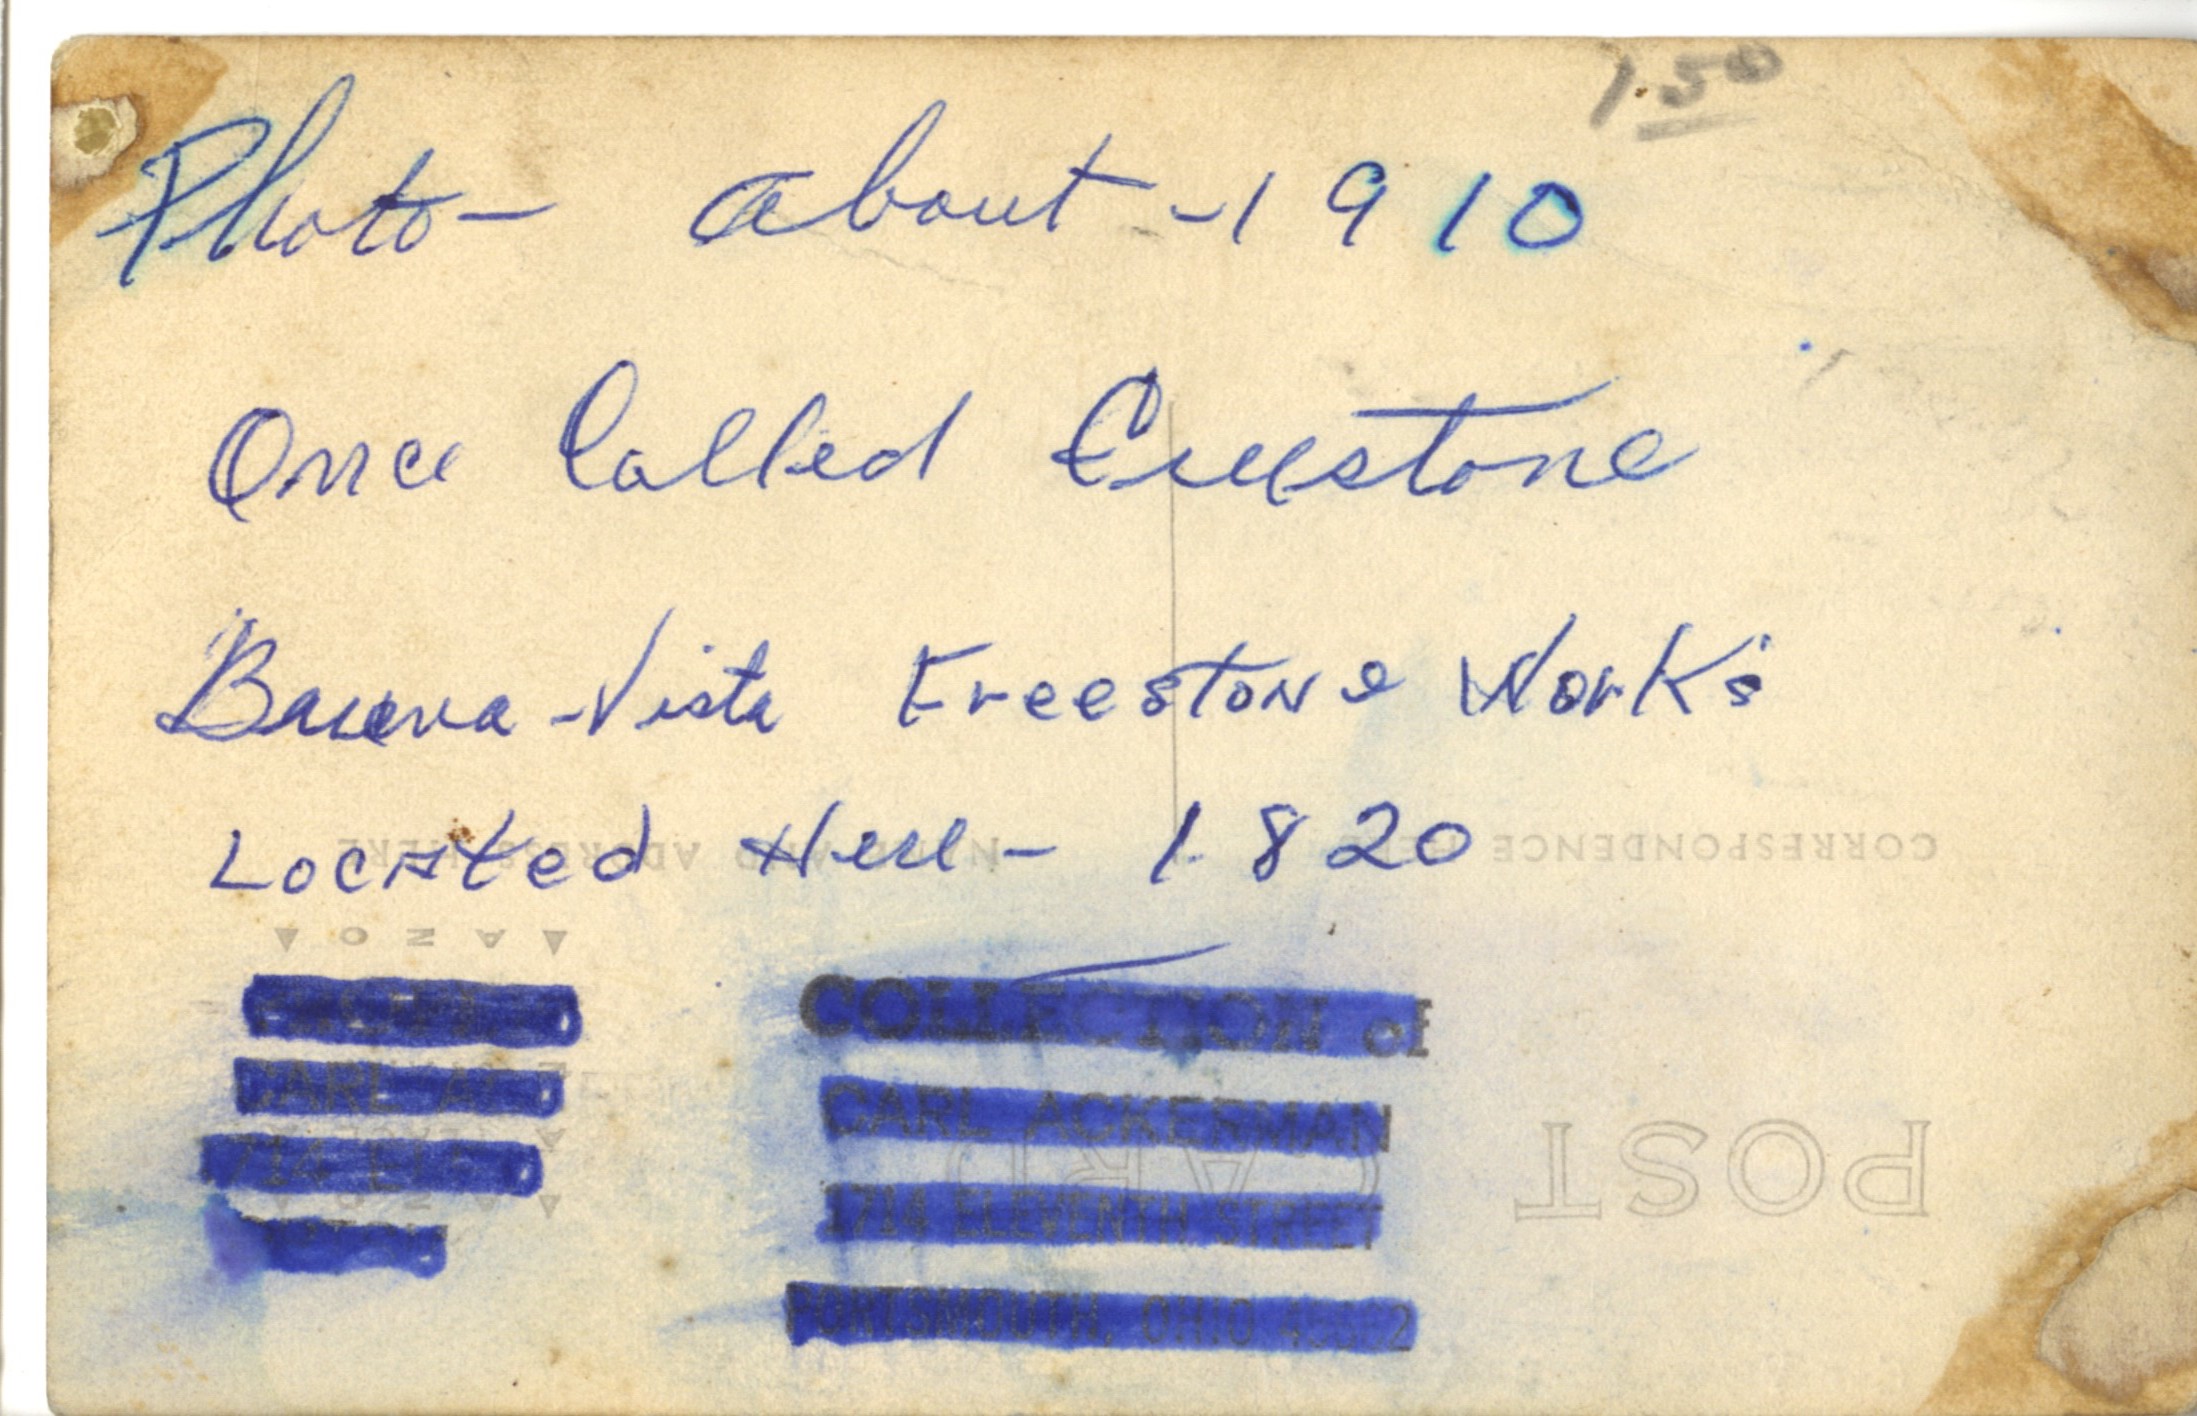 1.50
Photo - about - 1910
Once Called Freestone
Bauena-Vista Freestone Work's
Located Here - 1820
CORRESPONDENCE HERE
NAME AND ADDRESS HERE
AZO
CARL
1714
COLLECTION of
CARL ACKERMAN
1714 ELEVENTH STREET
PORTSMOUTH, OHIO
POST CARD